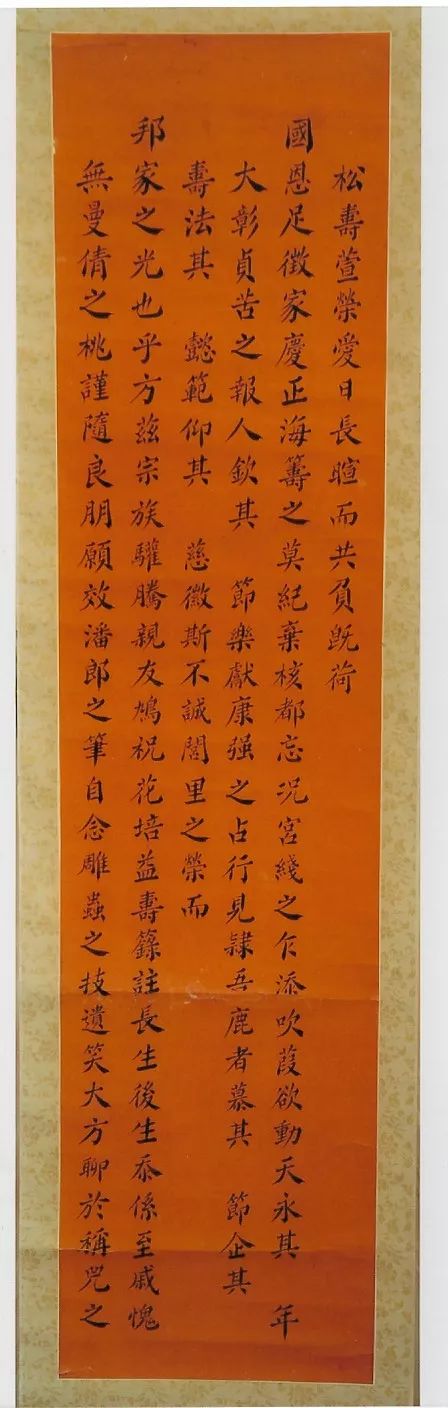 松壽萱榮愛日長暄而共負既荷
國恩足徵家慶正海籌之莫紀棄核都忘况宮綫之乍添吹葭欲動天永其　年
大彰貞苦之報人欽其　節樂獻康强之占行見隷吾鹿者慕其　節企其
壽法其　懿範仰其　慈徽斯不誠閭里之榮而
邦家之光也乎方兹宗族驩騰親友鳩祝花培益壽籙註長生後生忝係至戚愧
無曼倩之桃謹隨良朋願效潘郎之筆自念雕蟲之技遺笑大方聊於稱兕之